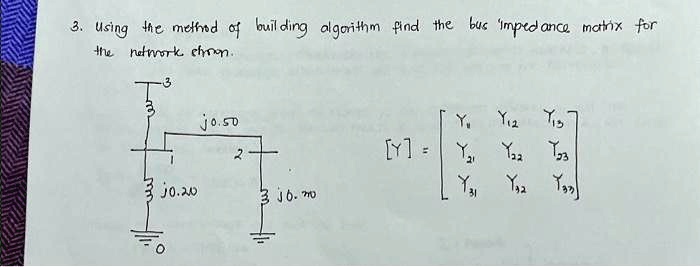 3. Using the method of building algorithm find the bus impedance matrix for
the network shown.
3
j0.50
1
2
[Y] =
Y11 Y12 Y13
Y21 Y22 Y23
Y31 Y32 Y33
j0.20
0